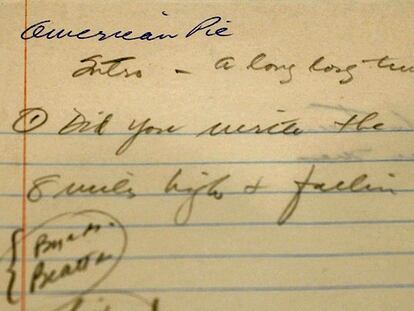 American Pie
Intro - A long long time
① Did you write the
8 miles high + fallin
Byrds.
Beatles